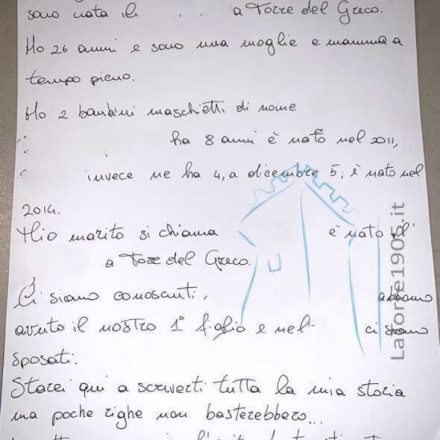 sono nata il a Torre del Greco.
Ho 26 anni e sono una moglie e mamma a
tempo pieno.
Ho 2 bambini maschietti di nome
ha 8 anni è nato nel 2011,
invece ne ha 4, a dicembre 5, è nato nel
2014.
Mio marito si chiama è nato il
a Torre del Greco.
Ci siamo conosciuti, abbiamo
avuto il nostro 1° figlio e nel ci siamo
sposati.
Starei qui a scriverti tutta la mia storia
ma poche righe non basterebbero...
LaTorre1905.it